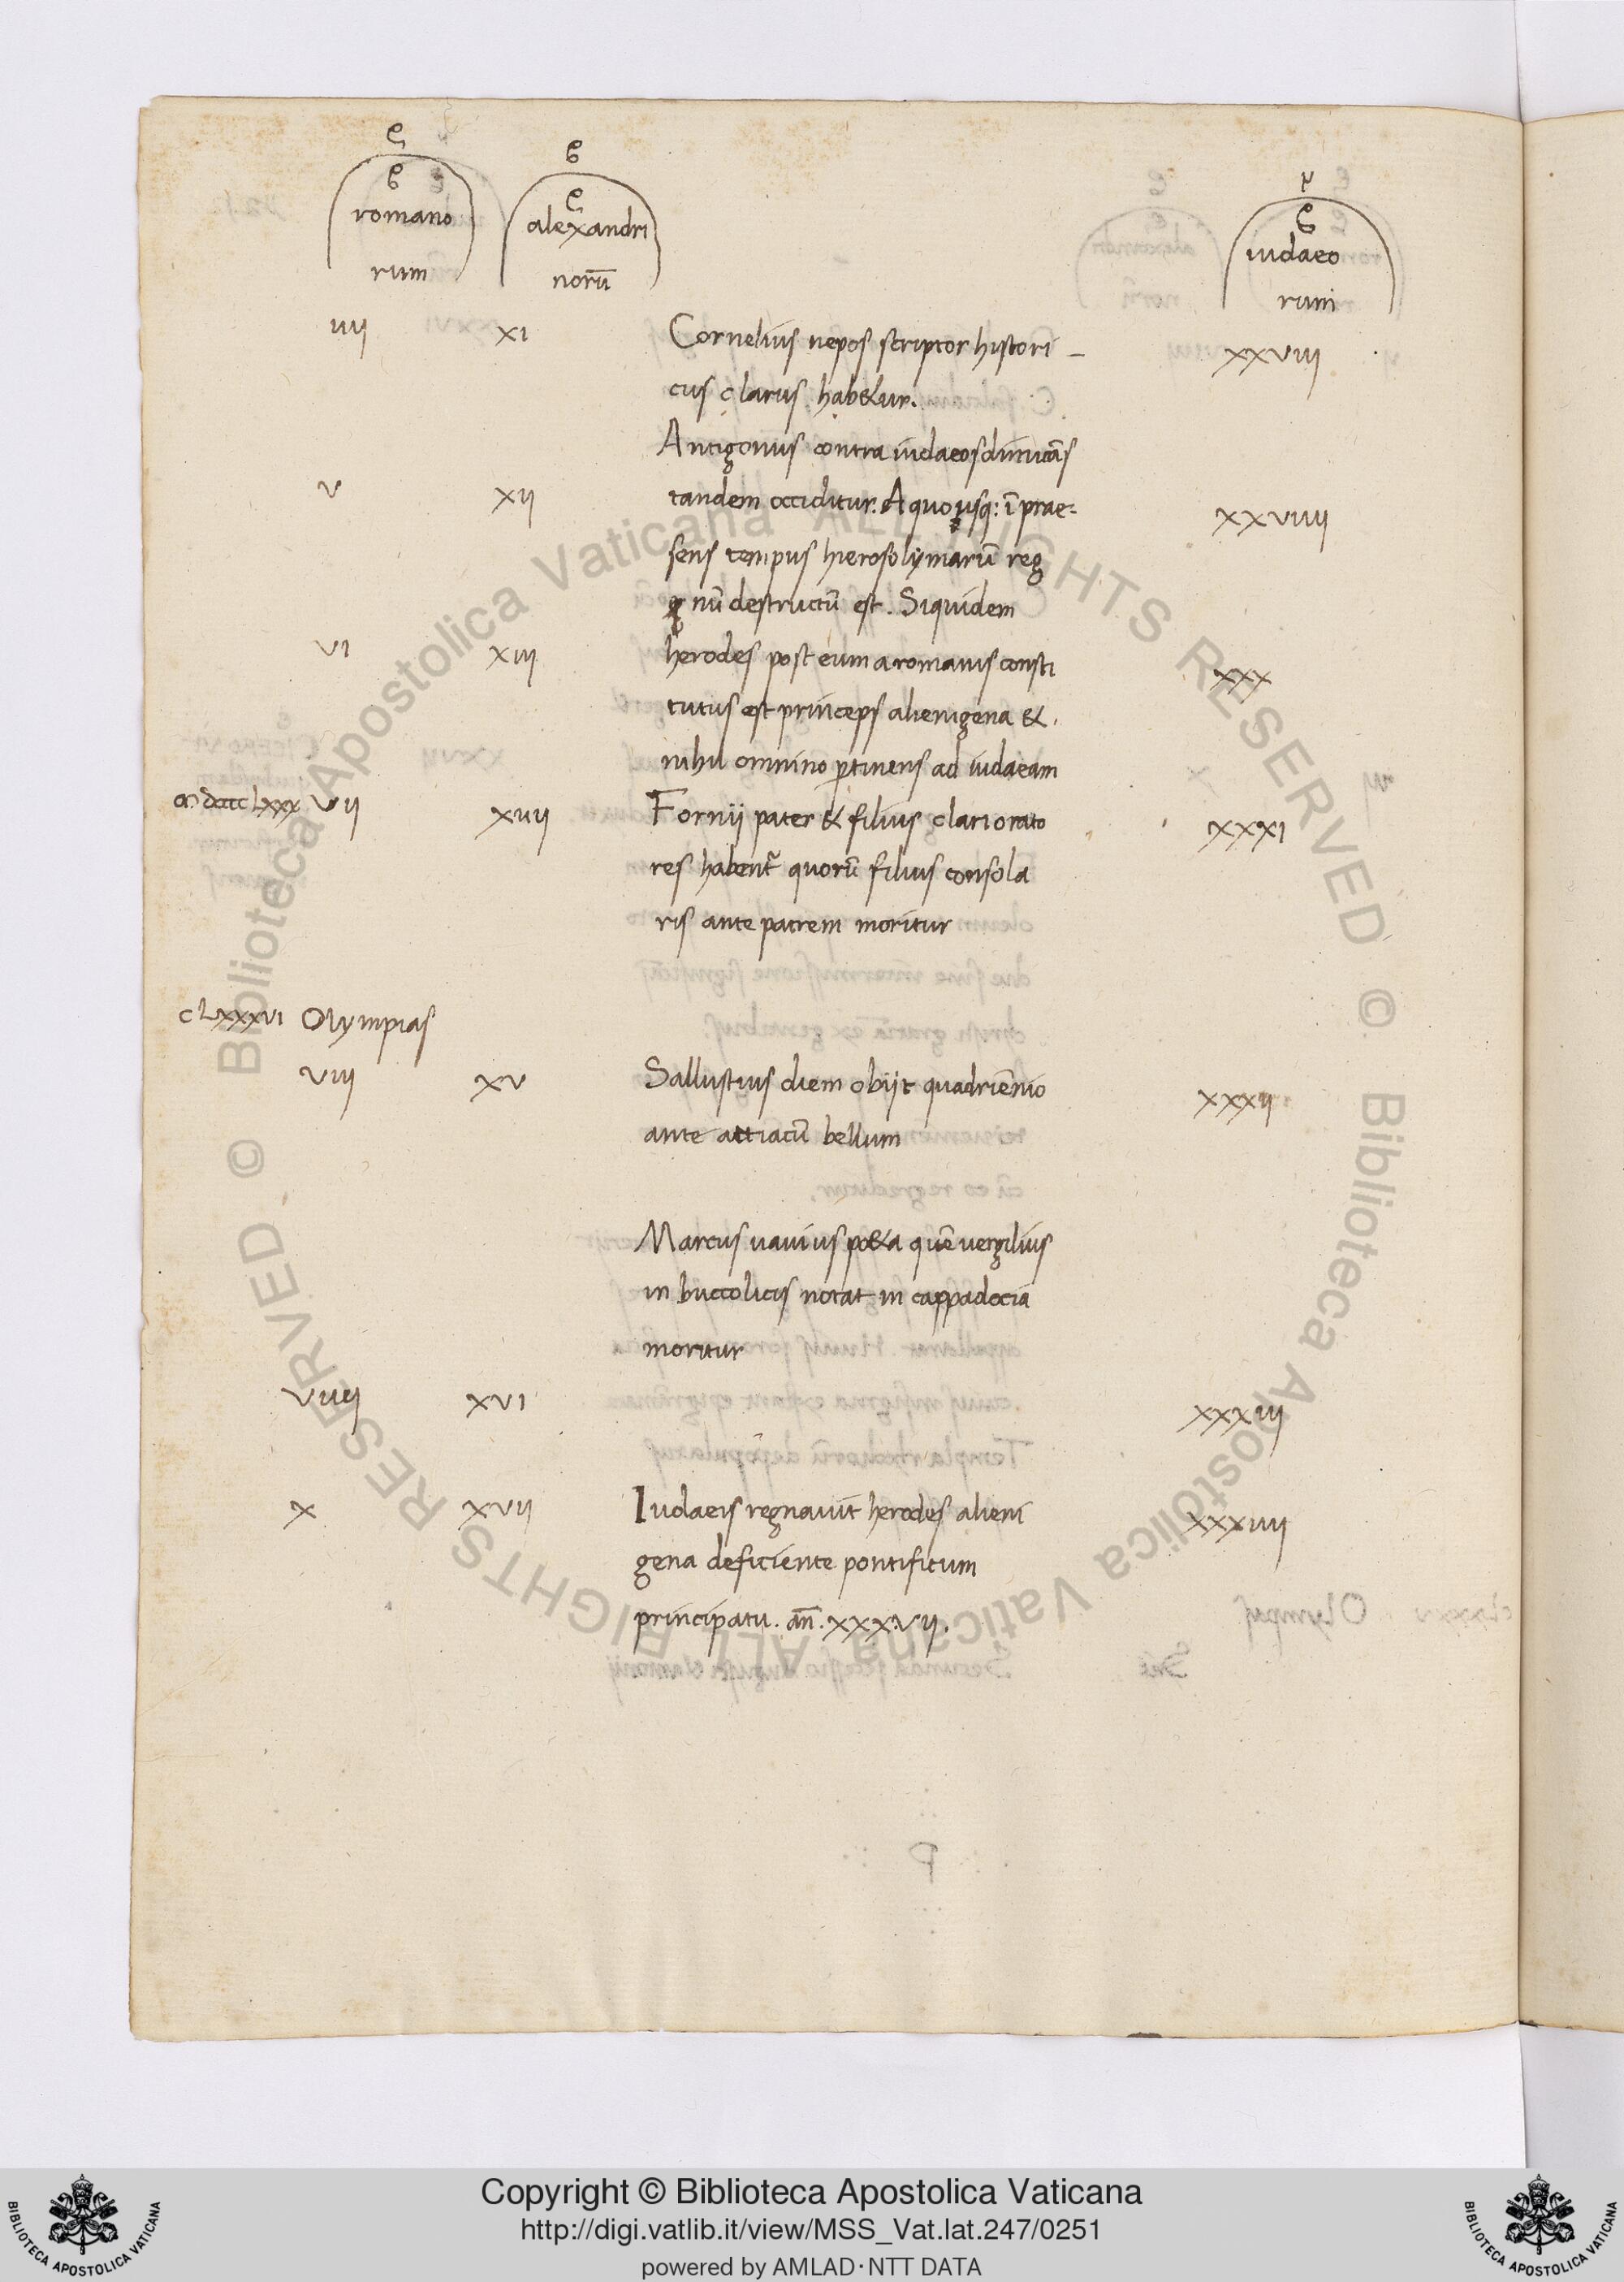 romano
rum
alexandri
norū
iudaeo
rum
iiij xi Cornelius nepos scriptor histori- xxviij
cus clarus habetur.
Antigonus contra iudaeos dimicās
v xij tandem occiditur. A quo usq: ī prae- xxviiij
sens tempus hierosolymarū reg
nū destructū est. Siquidem
vi xiij herodes post eum a romanis consti xxx
tutus est princeps alienigena &
nihil omnino ptinens ad iudaeam
vij xiiij Fornij pater & filius clari orato xxxi
res habent quorū filius consola
ris ante patrem moritur
cLxxxvi Olympias
viij xv Sallustius diem obijt quadriēnio xxxij
ante attiacū bellum
Marcus vavius poeta quē vergilius
in buccolicis notat in cappadocia
moritur
viiij xvi xxxiij
x xvij Iudaeis regnavit herodes alieni xxxiiij
gena deficiente pontificum
principatu. an̄. xxxvij.
Biblioteca Apostolica Vaticana ALL RIGHTS RESERVED ©
Biblioteca Apostolica Vaticana ALL RIGHTS RESERVED ©
Copyright © Biblioteca Apostolica Vaticana
http://digi.vatlib.it/view/MSS_Vat.lat.247/0251
powered by AMLAD·NTT DATA
BIBLIOTECA APOSTOLICA VATICANA
BIBLIOTECA APOSTOLICA VATICANA